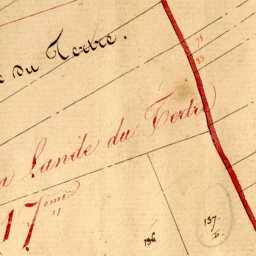 du Tertre.
la Lande du Tertre
17ème
136
137
b.